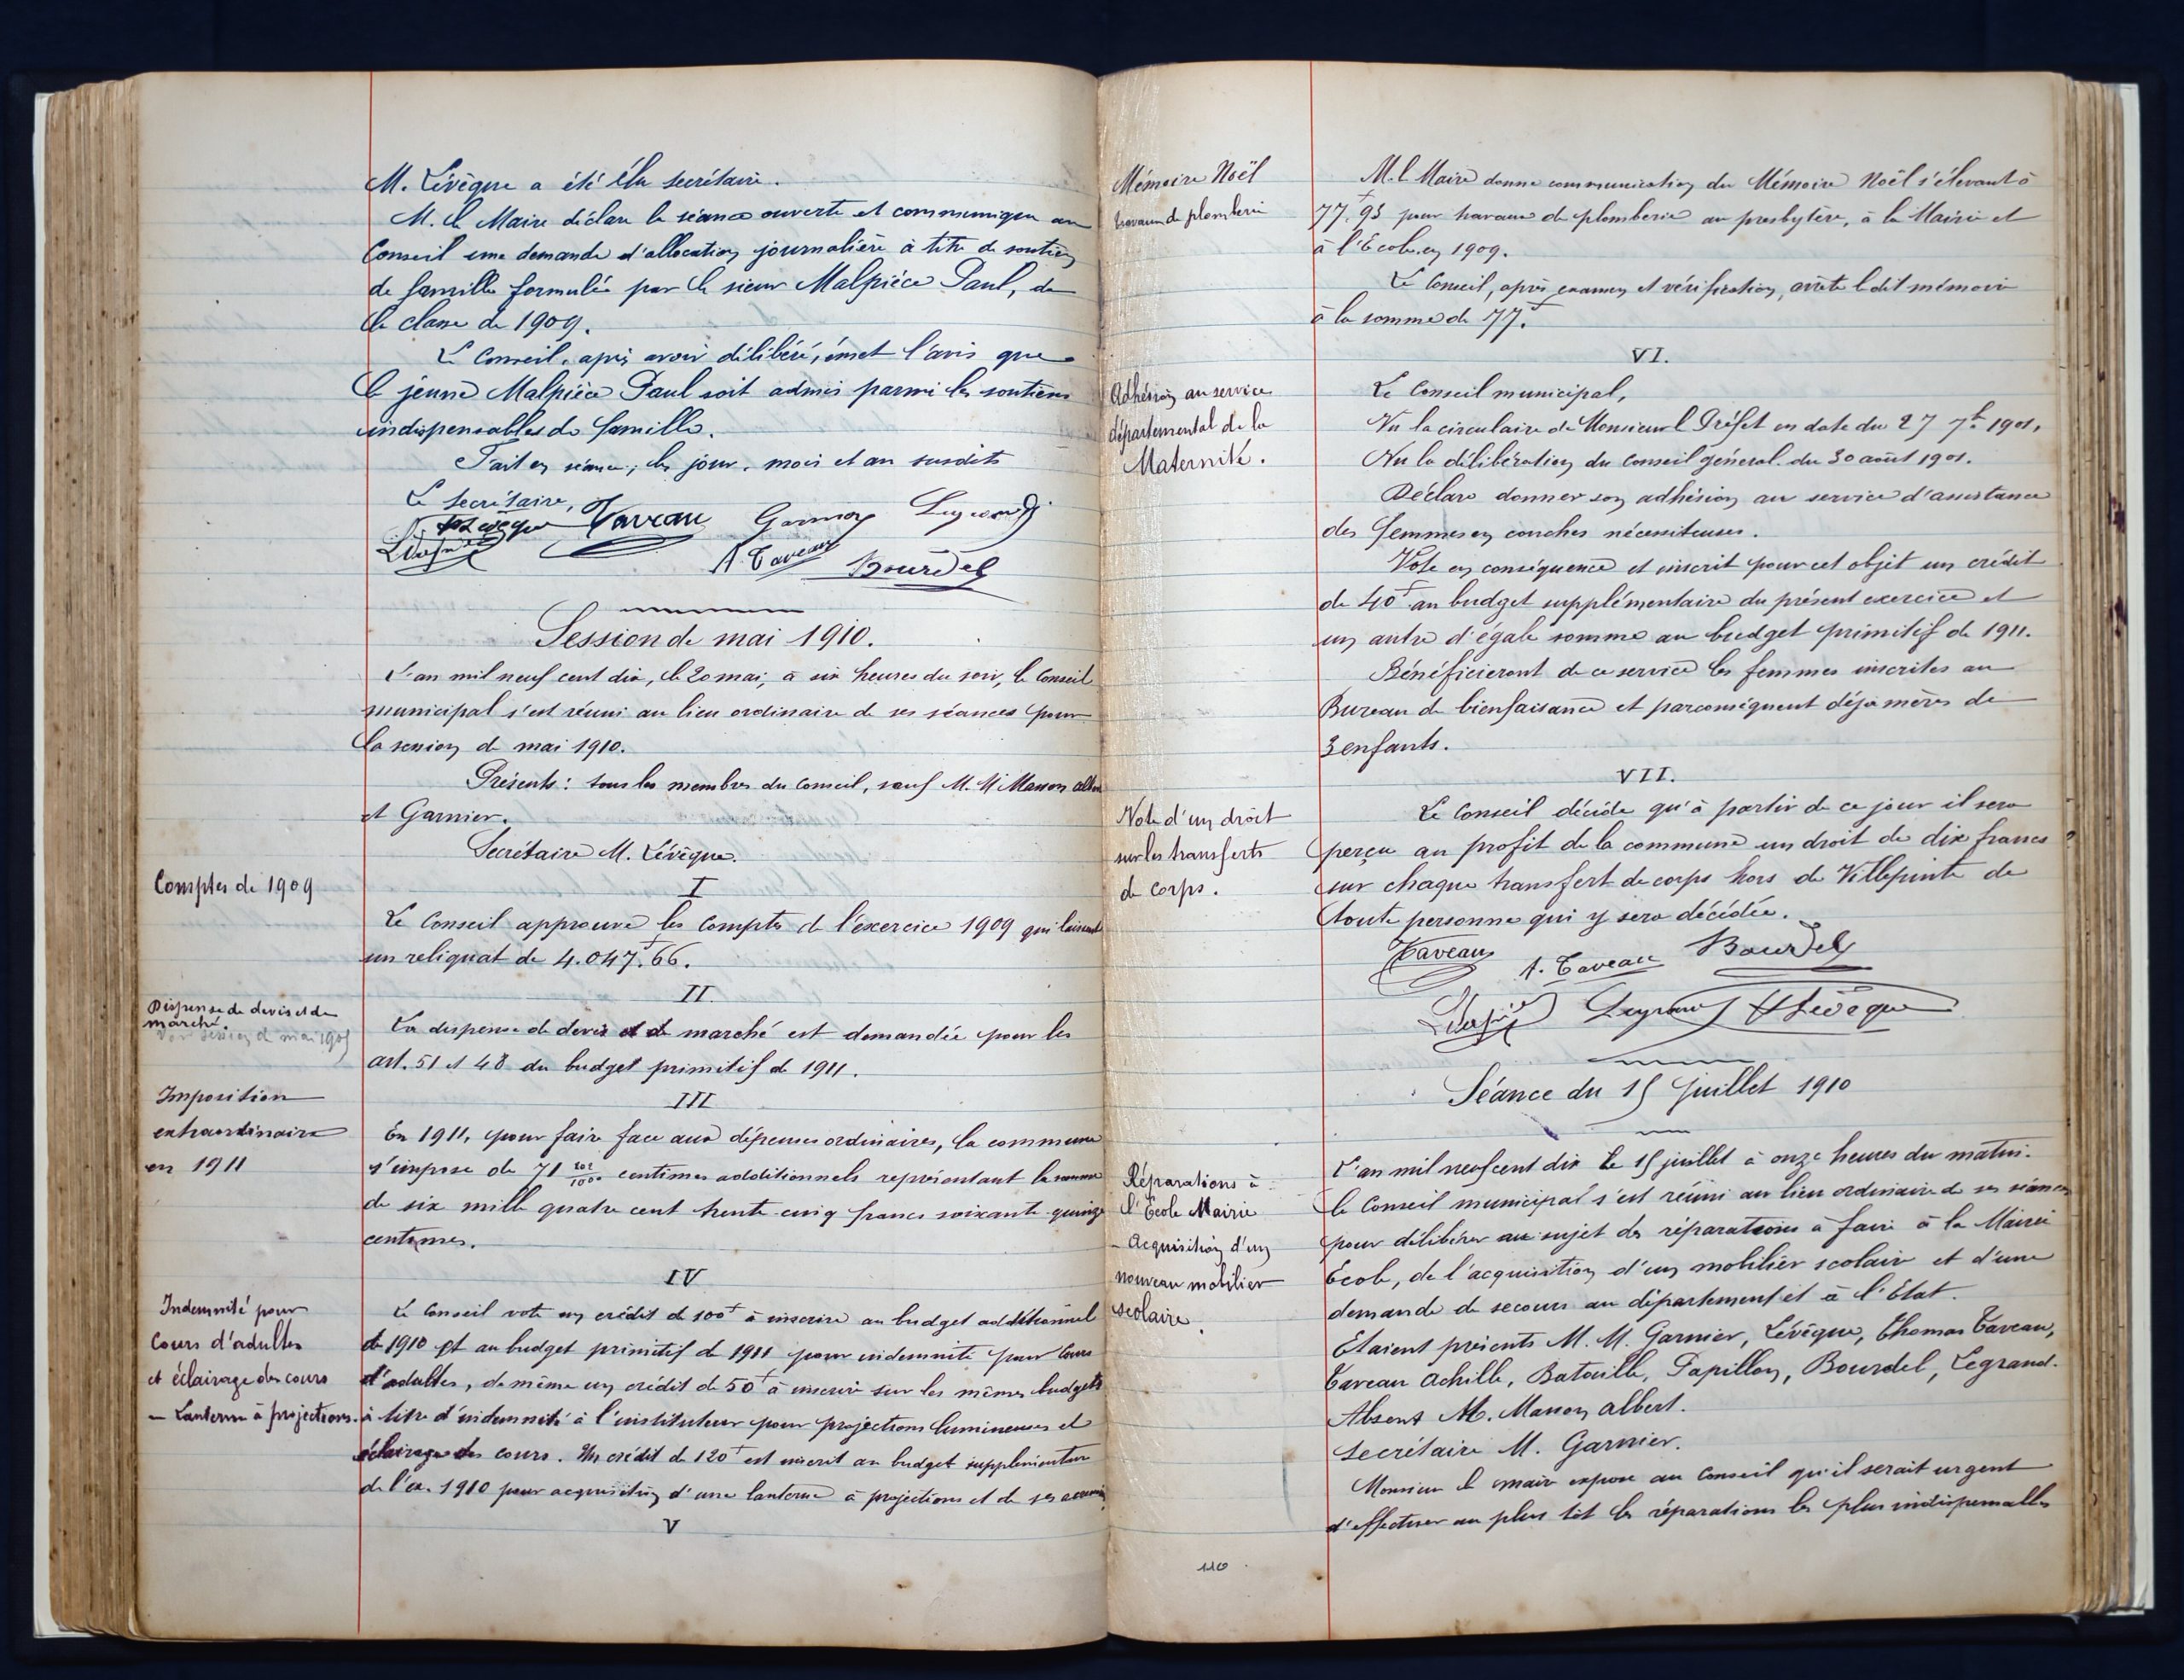 M. Lévêque a été élu secrétaire.
M. le Maire déclare la séance ouverte et communique au
Conseil une demande d'allocation journalière à titre de soutien
de famille formulée par le sieur Malpièce Paul, de
la classe de 1909.
Le Conseil, après avoir délibéré, émet l'avis que
le jeune Malpièce Paul soit admis parmi les soutiens
indispensables de famille.
Fait en séance, les jour, mois et an susdits
Le Secrétaire,
Lévêque Taveau Garnier Legrand
A. Taveau Bourdel
Session de mai 1910.
L'an mil neuf cent dix, le 20 mai, à six heures du soir, le Conseil
municipal s'est réuni au lieu ordinaire de ses séances pour
la session de mai 1910.
Présents : tous les membres du Conseil, sauf M. M. Masson
et Garnier.
Secrétaire M. Lévêque.
Comptes de 1909
I
Le Conseil approuve les Comptes de l'exercice 1909 qui laissent
un reliquat de 4.047f.66.
II
Dispense de devis et de
marché.
Voir session de mai 1905
La dispense de devis et de marché est demandée pour les
art. 51 et 48 du budget primitif de 1911.
III
Imposition
extraordinaire
en 1911
En 1911, pour faire face aux dépenses ordinaires, la commune
s'impose de 71 centimes additionnels représentant la somme
de six mille quatre cent trente-cinq francs soixante-quinze
centimes.
IV
Indemnité pour
Cours d'adultes
et éclairage des cours
— Lanterne à projections.
Le Conseil vote un crédit de 100f à inscrire au budget additionnel
de 1910 et au budget primitif de 1911 pour indemnité pour Cours
d'adultes, de même un crédit de 50f à inscrire sur les mêmes budgets
à titre d'indemnité à l'instituteur pour projections lumineuses et
éclairage des cours. Un crédit de 120f est inscrit au budget supplémentaire
de l'ex. 1910 pour acquisition d'une lanterne à projections et de ses
V
Mémoire Noël
travaux de plomberie
M. le Maire donne communication du Mémoire Noël s'élevant à
77f.95 pour travaux de plomberie au presbytère, à la Mairie et
à l'École en 1909.
Le Conseil, après examen et vérification, arrête le dit mémoire
à la somme de 77f.
VI.
Adhésion au service
départemental de la
Maternité.
Le Conseil municipal,
Vu la circulaire de Monsieur le Préfet en date du 27 7bre 1901,
Vu la délibération du Conseil général du 30 août 1901.
Déclare donner son adhésion au service d'assistance
des femmes en couches nécessiteuses.
Vote en conséquence et inscrit pour cet objet un crédit
de 40f au budget supplémentaire du présent exercice et
un autre d'égale somme au budget primitif de 1911.
Bénéficieront de ce service les femmes inscrites au
Bureau de bienfaisance et parconséquent déjà mères de
3 enfants.
VII.
Vote d'un droit
sur les transferts
de corps.
Le Conseil décide qu'à partir de ce jour il sera
perçu au profit de la commune un droit de dix francs ?
sur chaque transfert de corps hors de Villepinte de
toute personne qui y sera décédée.
Taveau A. Taveau Bourdel
Legrand Lévêque
Séance du 15 Juillet 1910
Réparations à
l'École Mairie
— Acquisition d'un
nouveau mobilier
scolaire.
L'an mil neuf cent dix le 15 juillet à onze heures du matin.
le Conseil municipal s'est réuni au lieu ordinaire de ses séances
pour délibérer au sujet des réparations à faire à la Mairie
École, de l'acquisition d'un mobilier scolaire et d'une
demande de secours au département et à l'État.
Étaient présents M. M. Garnier, Lévêque, Thomas Taveau,
Taveau Achille, Batouille, Papillon, Bourdel, Legrand.
Absent M. Masson Albert.
Secrétaire M. Garnier.
Monsieur le maire expose au Conseil qu'il serait urgent
d'effectuer au plus tôt les réparations les plus indispensables
110